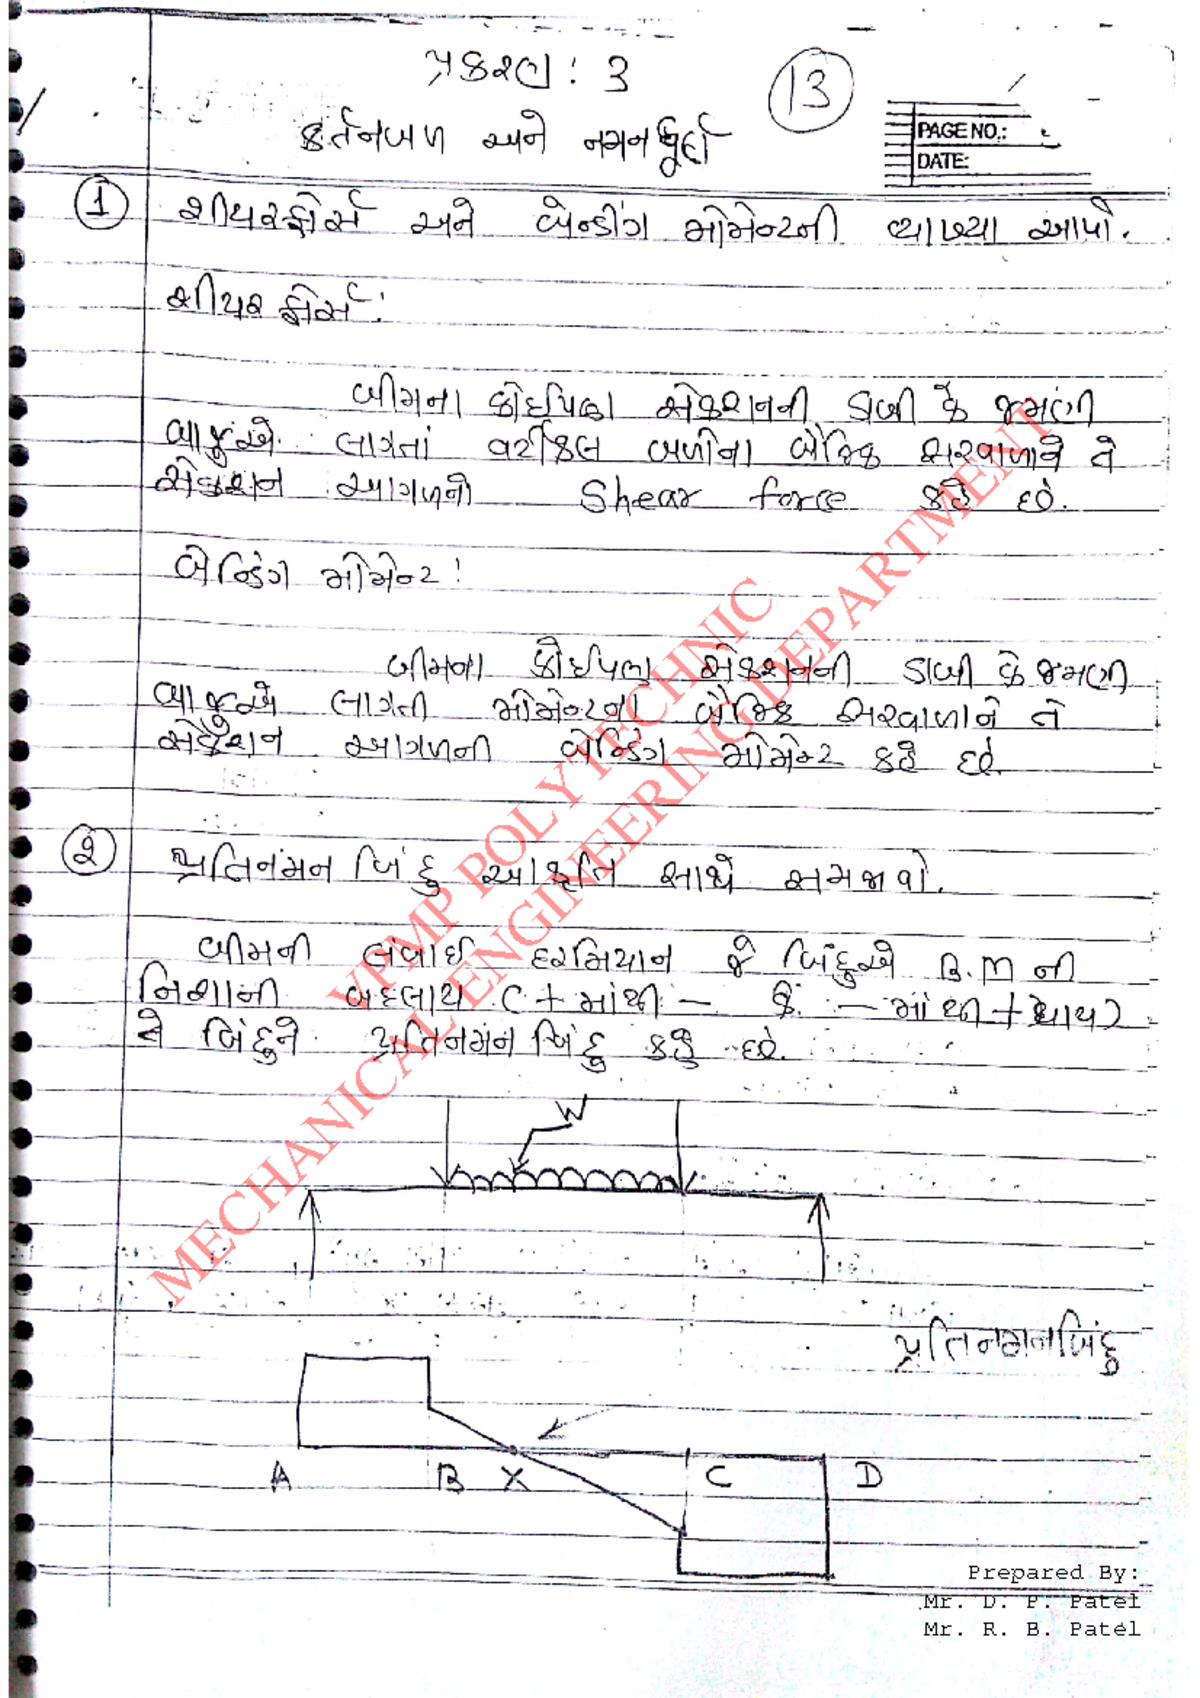 પ્રકરણ : ૩
13
કર્તનબળ અને નમનઘૂર્ણ
PAGE NO.:
DATE:
1 શીયરફોર્સ અને બેન્ડીંગ મોમેન્ટની વ્યાખ્યા આપો.
શીયર ફોર્સ :
બીમના કોઈપણ સેકશનની ડાબી કે જમણી
બાજુએ લાગતાં વર્ટીકલ બળોના બૈજિક સરવાળાને તે
સેકશન આગળનો Shear force કહે છે.
બેન્ડિંગ મોમેન્ટ :
બીમના કોઈપણ સેકશનની ડાબી કે જમણી
બાજુએ લાગતી મોમેન્ટના બૈજિક સરવાળાને તે
સેકશન આગળની બેન્ડિંગ મોમેન્ટ કહે છે.
૨ પ્રતિનંમન બિંદુ આકૃતિ સાથે સમજાવો.
બીમની લંબાઈ દરમિયાન જે બિંદુએ B.M ની
નિશાની બદલાય (+ માંથી - કે - માંથી + થાય)
તે બિંદુને પ્રતિનમંન બિંદુ કહે છે.
W
પ્રતિનમનબિંદુ
A B X C D
VPMP POLYTECHNIC
MECHANICAL ENGINEERING DEPARTMENT
Prepared By:
Mr. D. P. Patel
Mr. R. B. Patel